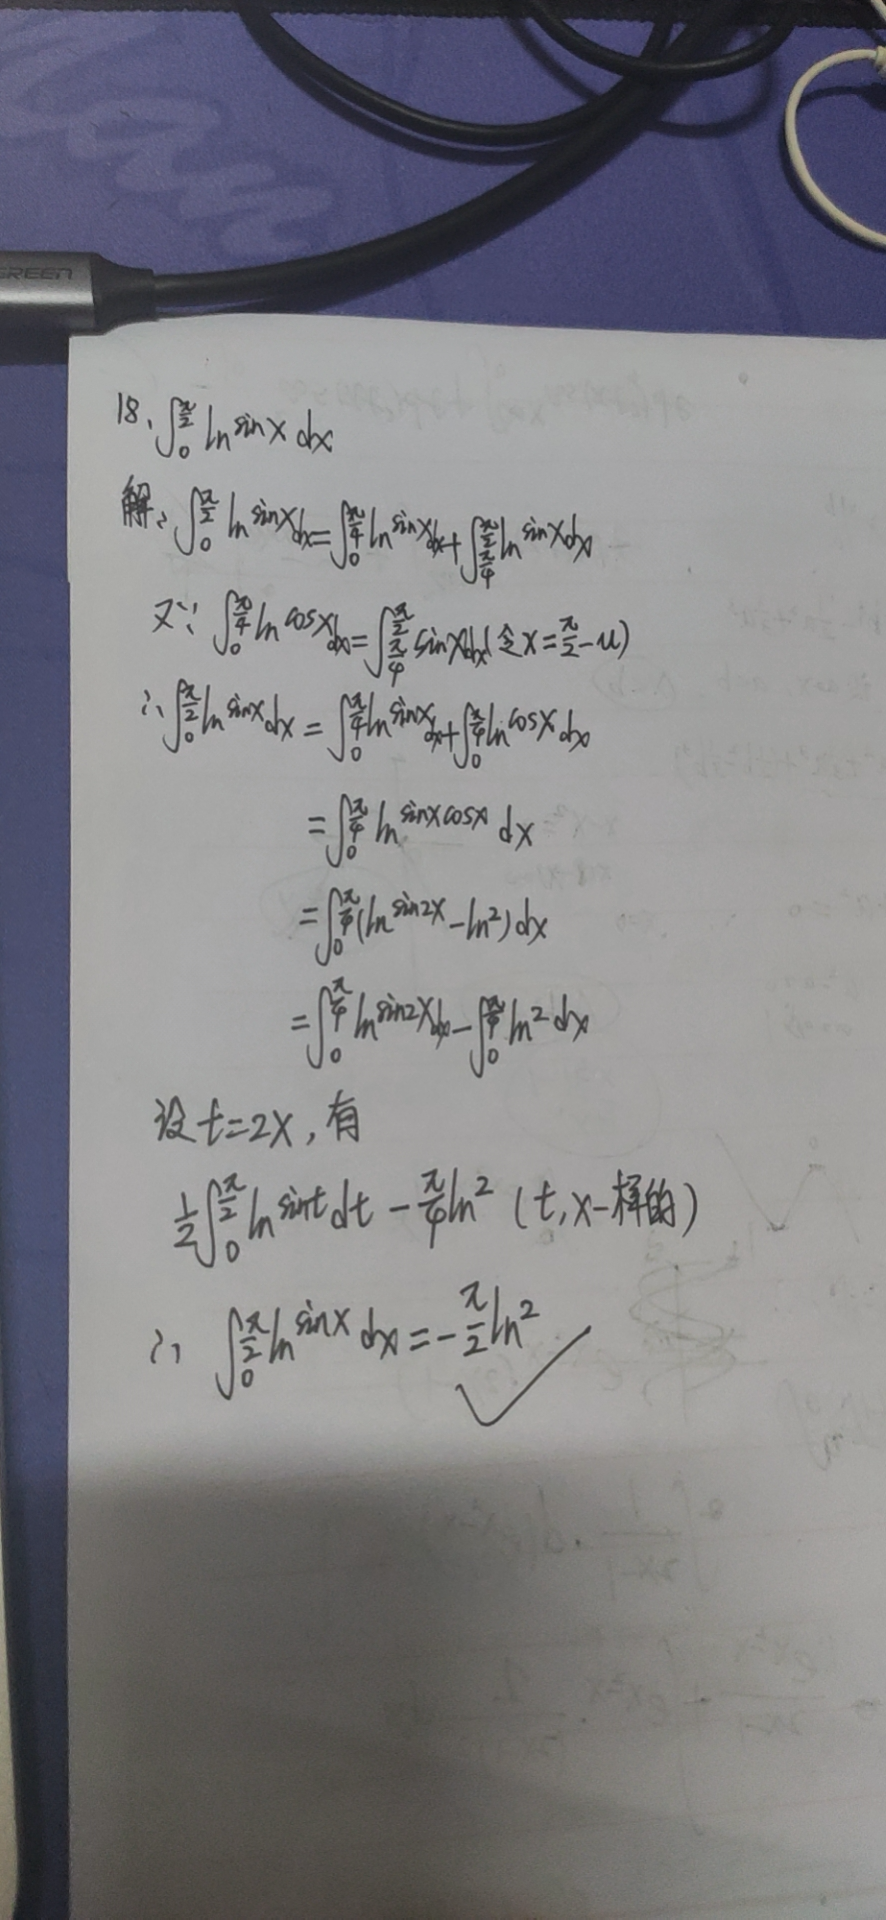 GREEN
18、∫₀^{π/2} ln sinx dx
解：∫₀^{π/2} ln sinx dx = ∫₀^{π/4} ln sinx dx + ∫_{π/4}^{π/2} ln sinx dx
又∵ ∫₀^{π/4} ln cosx dx = ∫_{π/4}^{π/2} sinx dx (令x=π/2-u)
∴ ∫₀^{π/2} ln sinx dx = ∫₀^{π/4} ln sinx dx + ∫₀^{π/4} ln cosx dx
= ∫₀^{π/4} ln sinxcosx dx
= ∫₀^{π/4} (ln sin2x - ln2) dx
= ∫₀^{π/4} ln sin2x dx - ∫₀^{π/4} ln2 dx
设t=2x，有
1/2 ∫₀^{π/2} ln sint dt - π/4 ln2 (t,x一样的)
∴ ∫₀^{π/2} ln sinx dx = -π/2 ln2